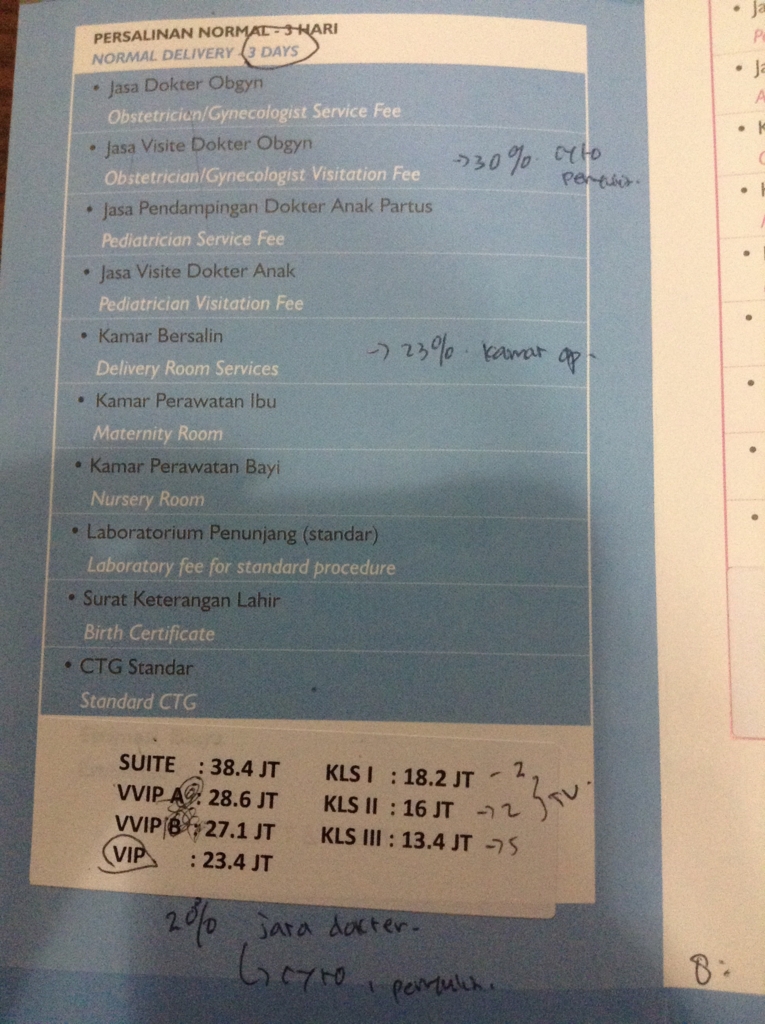 PERSALINAN NORMAL - 3 HARI
NORMAL DELIVERY - 3 DAYS
• Jasa Dokter Obgyn
Obstetrician/Gynecologist Service Fee
• Jasa Visite Dokter Obgyn
Obstetrician/Gynecologist Visitation Fee
→30% cyto
• Jasa Pendampingan Dokter Anak Partus
Pediatrician Service Fee
• Jasa Visite Dokter Anak
Pediatrician Visitation Fee
• Kamar Bersalin
Delivery Room Services
→ 23% kamar op.
• Kamar Perawatan Ibu
Maternity Room
• Kamar Perawatan Bayi
Nursery Room
• Laboratorium Penunjang (standar)
Laboratory fee for standard procedure
• Surat Keterangan Lahir
Birth Certificate
• CTG Standar
Standard CTG
SUITE : 38.4 JT
VVIP A : 28.6 JT
VVIP B : 27.1 JT
VIP : 23.4 JT
KLS I : 18.2 JT - 2
KLS II : 16 JT → 2
KLS III : 13.4 JT → 5
TV.
20% jasa dokter.
↳ cyto,
8: